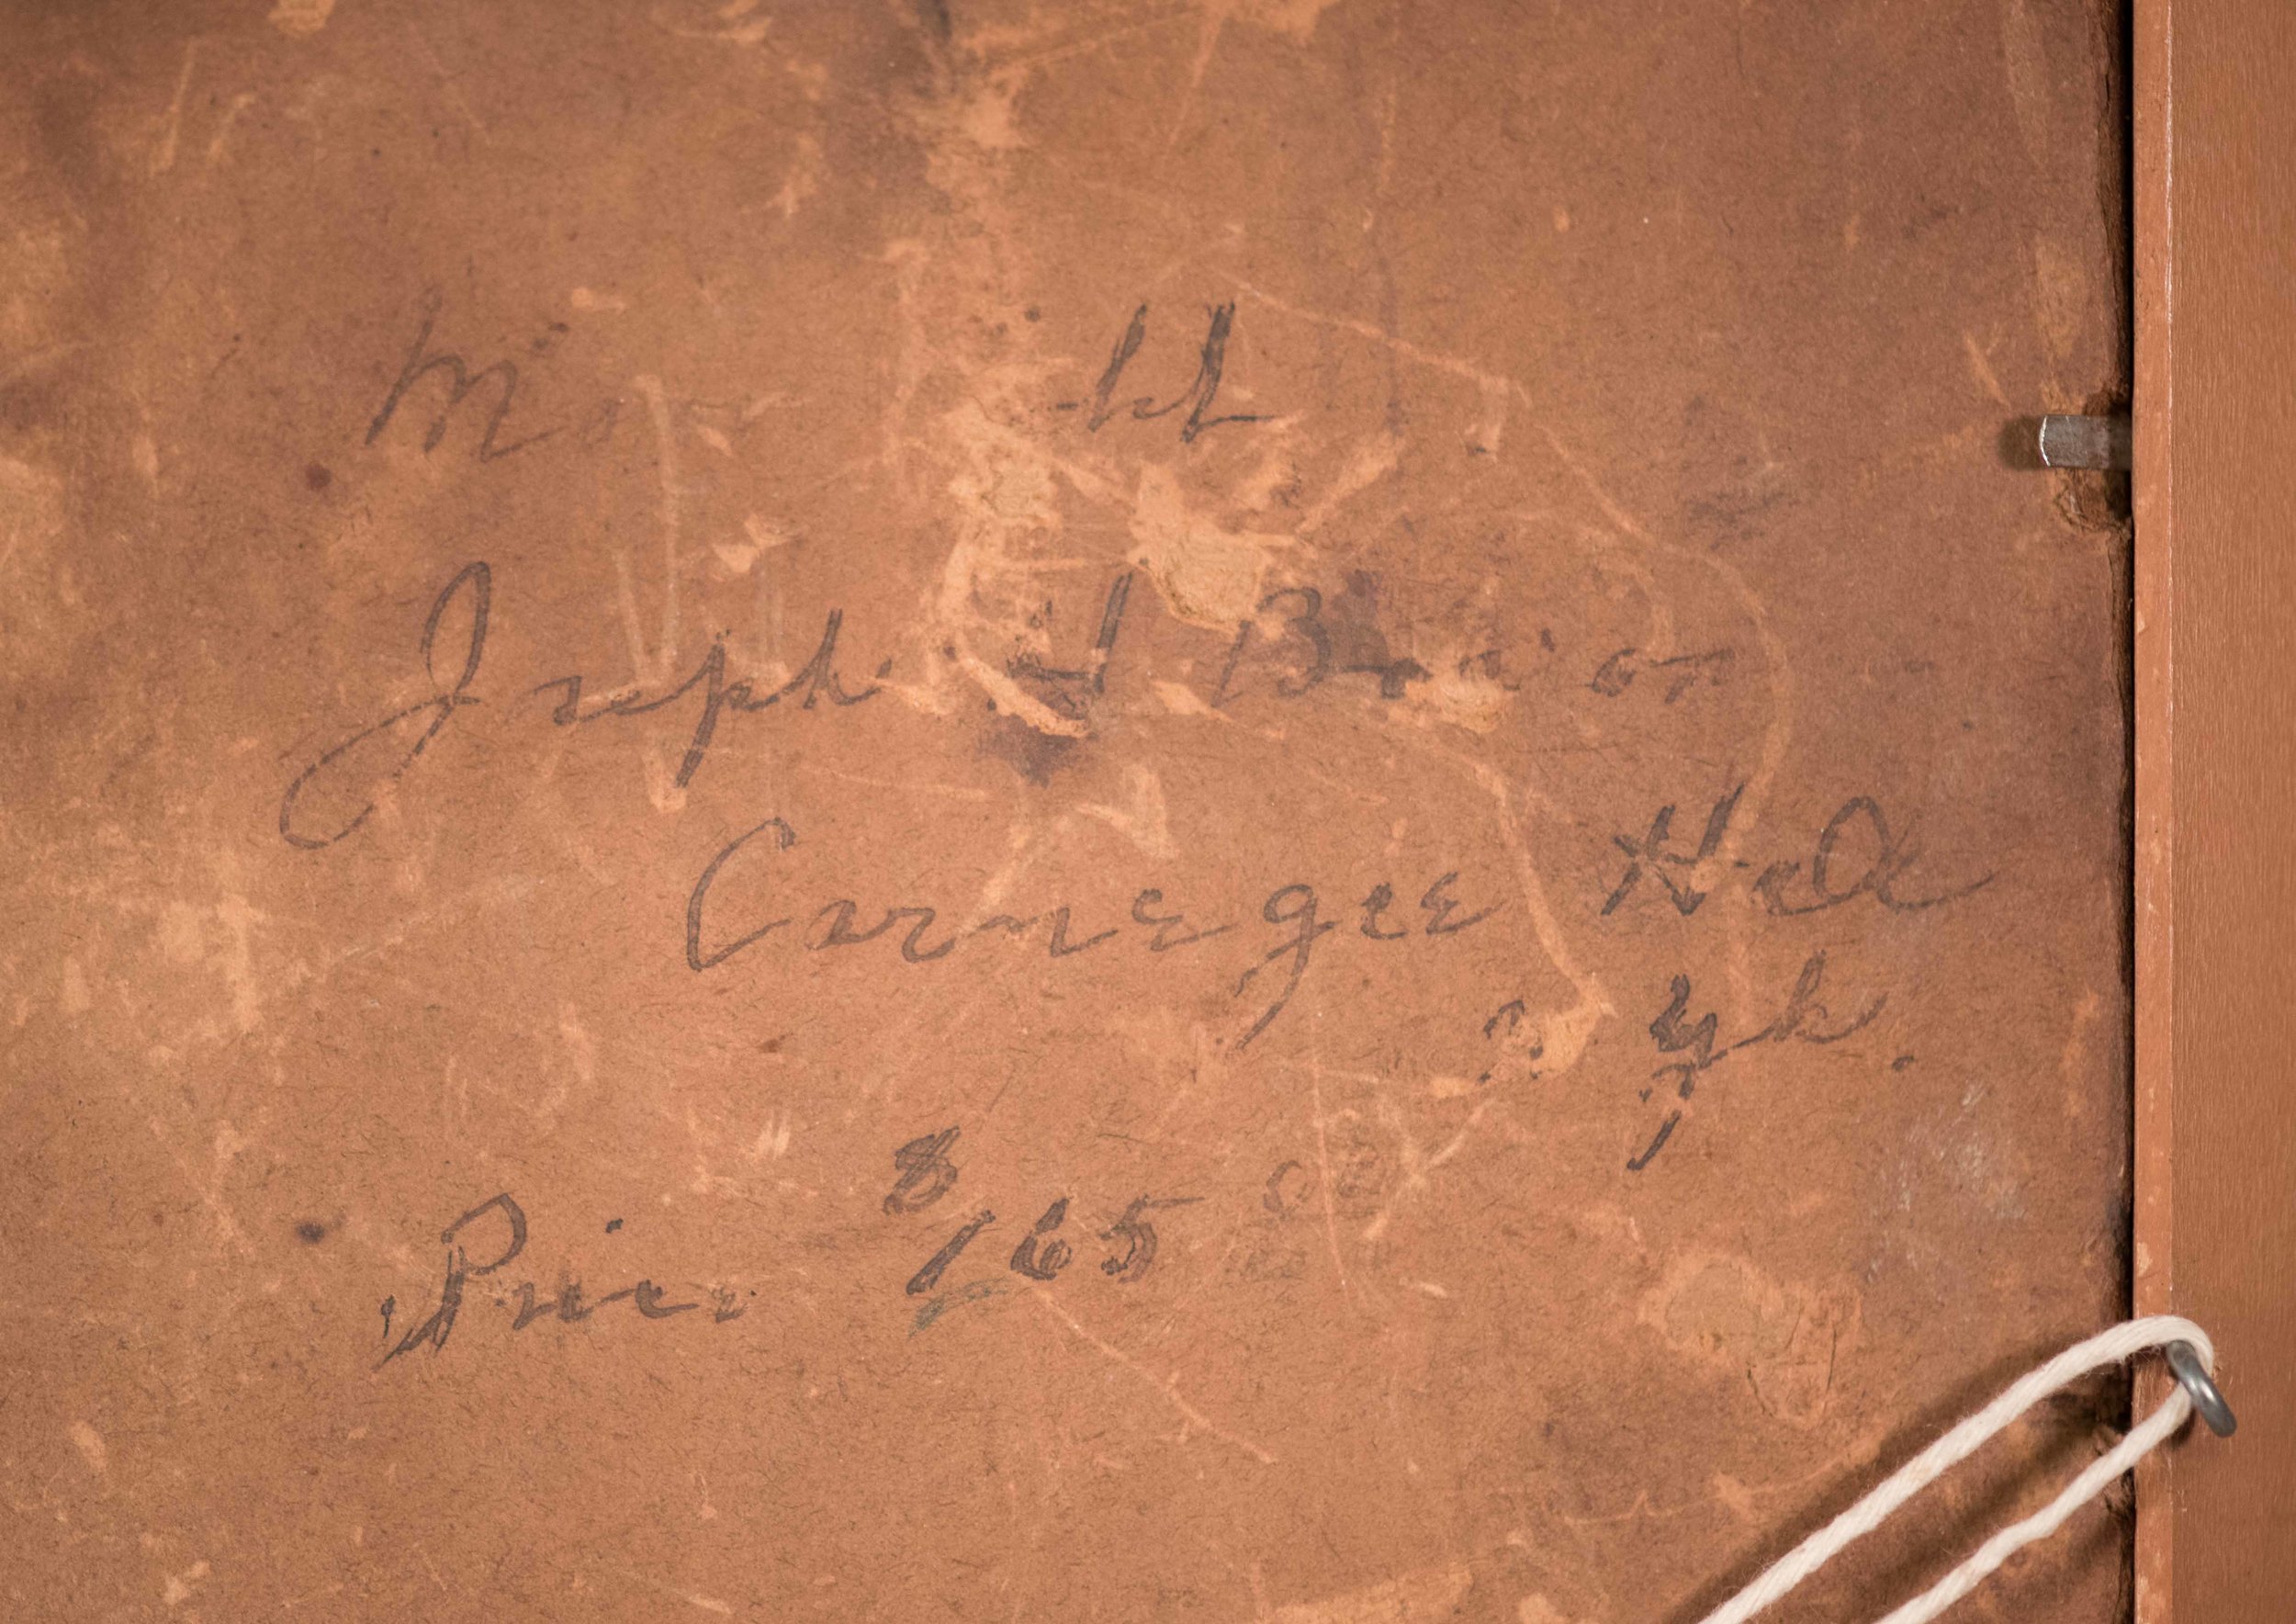 Joseph H Boston
Carnegie Hall
N. York.
Price $165 00